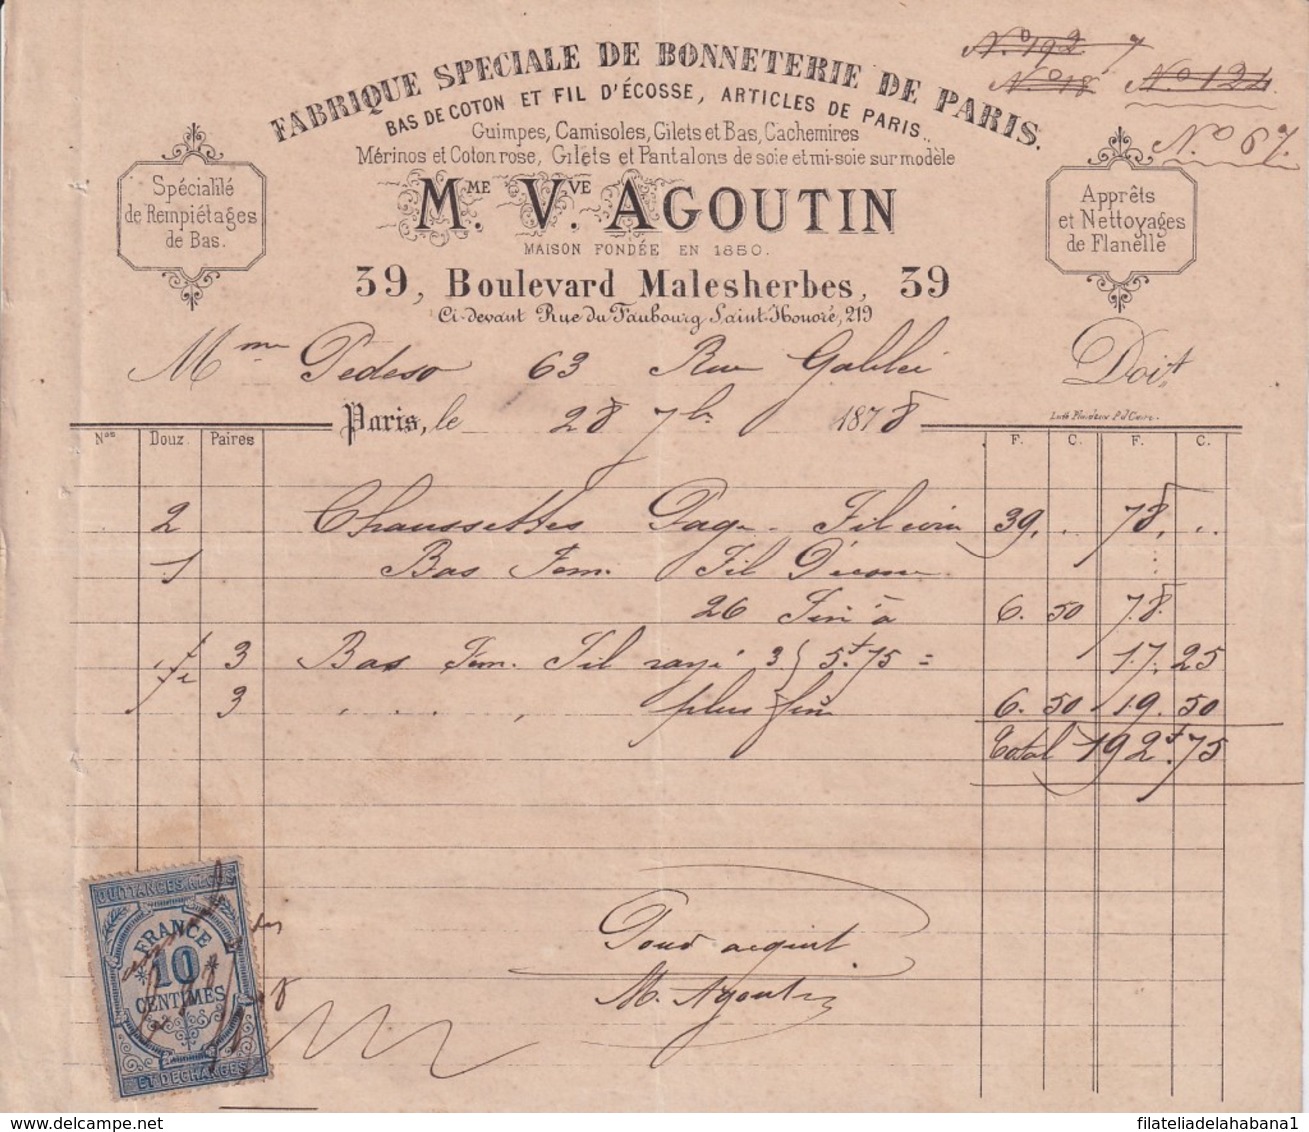 N.º 192 7
N.º 18 N.º 124.
N.º 67.
FABRIQUE SPECIALE DE BONNETERIE DE PARIS.
BAS DE COTON ET FIL D'ÉCOSSE, ARTICLES DE PARIS..
Guimpes, Camisoles, Gilets et Bas, Cachemires
Mérinos et Coton rose, Gilets et Pantalons de soie et mi-soie sur modèle
MME. VVE. AGOUTIN
MAISON FONDÉE EN 1850.
39, Boulevard Malesherbes, 39
Ci-devant Rue du Faubourg Saint-Honoré, 219
Spécialité
de Rempiétages
de Bas.
Apprêts
et Nettoyages
de Flanelle
Mme Pedeso 63 Rue Galilei Doit
Paris, le 28 7bre 1878
Nos Douz. Paires F. C. F. C.
2 Chaussettes Fil 39. .. 78. ..
1 Bas Fem. Fil D'écosse
26 fin à 6. 50 78.
3 Bas Fem. Fil rayé 3 5f.75 = 17. 25
3 . . . . , plus fin 6. 50 19. 50
Total 192f.75
QUITTANCES, REÇUS
FRANCE
* 10 *
CENTIMES
ET DÉCHARGES
Pour acquit
M. Agoutin
filateliadelahabana1